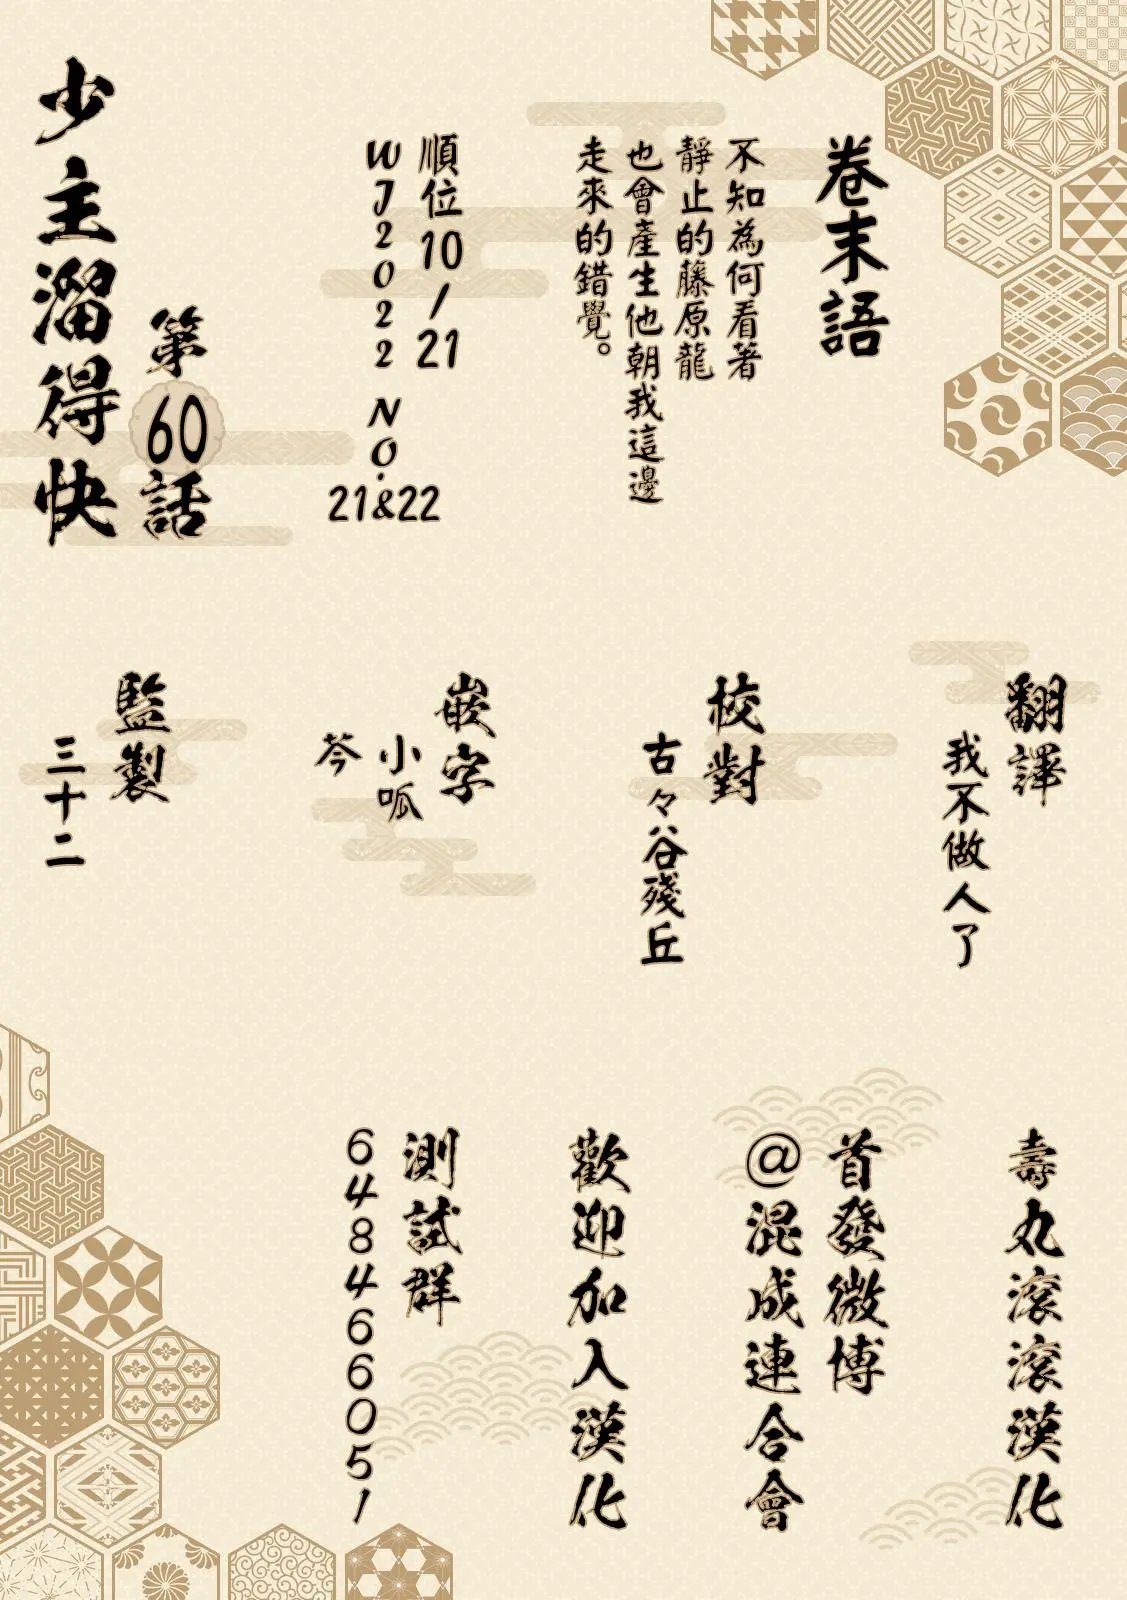 卷末語
不知為何看著
靜止的藤原龍
也會產生他朝我這邊
走來的錯覺。
順位10/21
WJ2022 NO.21&22
第60話
少主溜得快
翻譯
我不做人了
校對
古々谷殘丘
嵌字
小呱
芩
監製
三十二
壽丸滾滾漢化
首發微博
@混成連合會
歡迎加入漢化
測試群
648466051